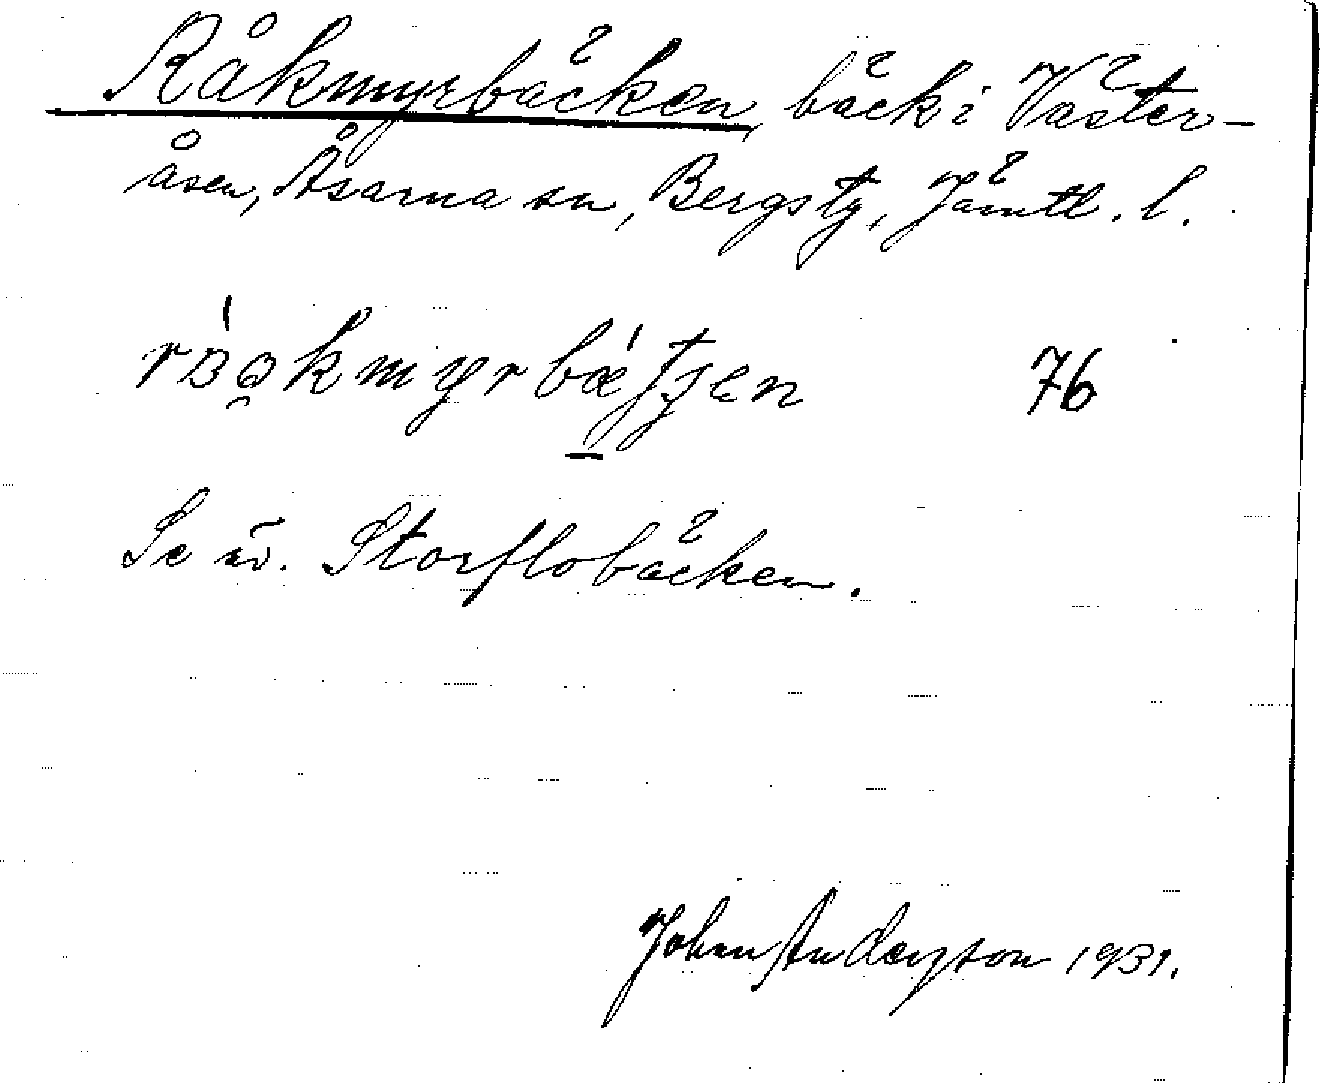 Råkmyrbäcken, bäck i Väster-
åsen, Åsarna sn, Bergs tg, Jämtl. l.
76
Se üv. Storflobäcken.
John Anderzson 1931.